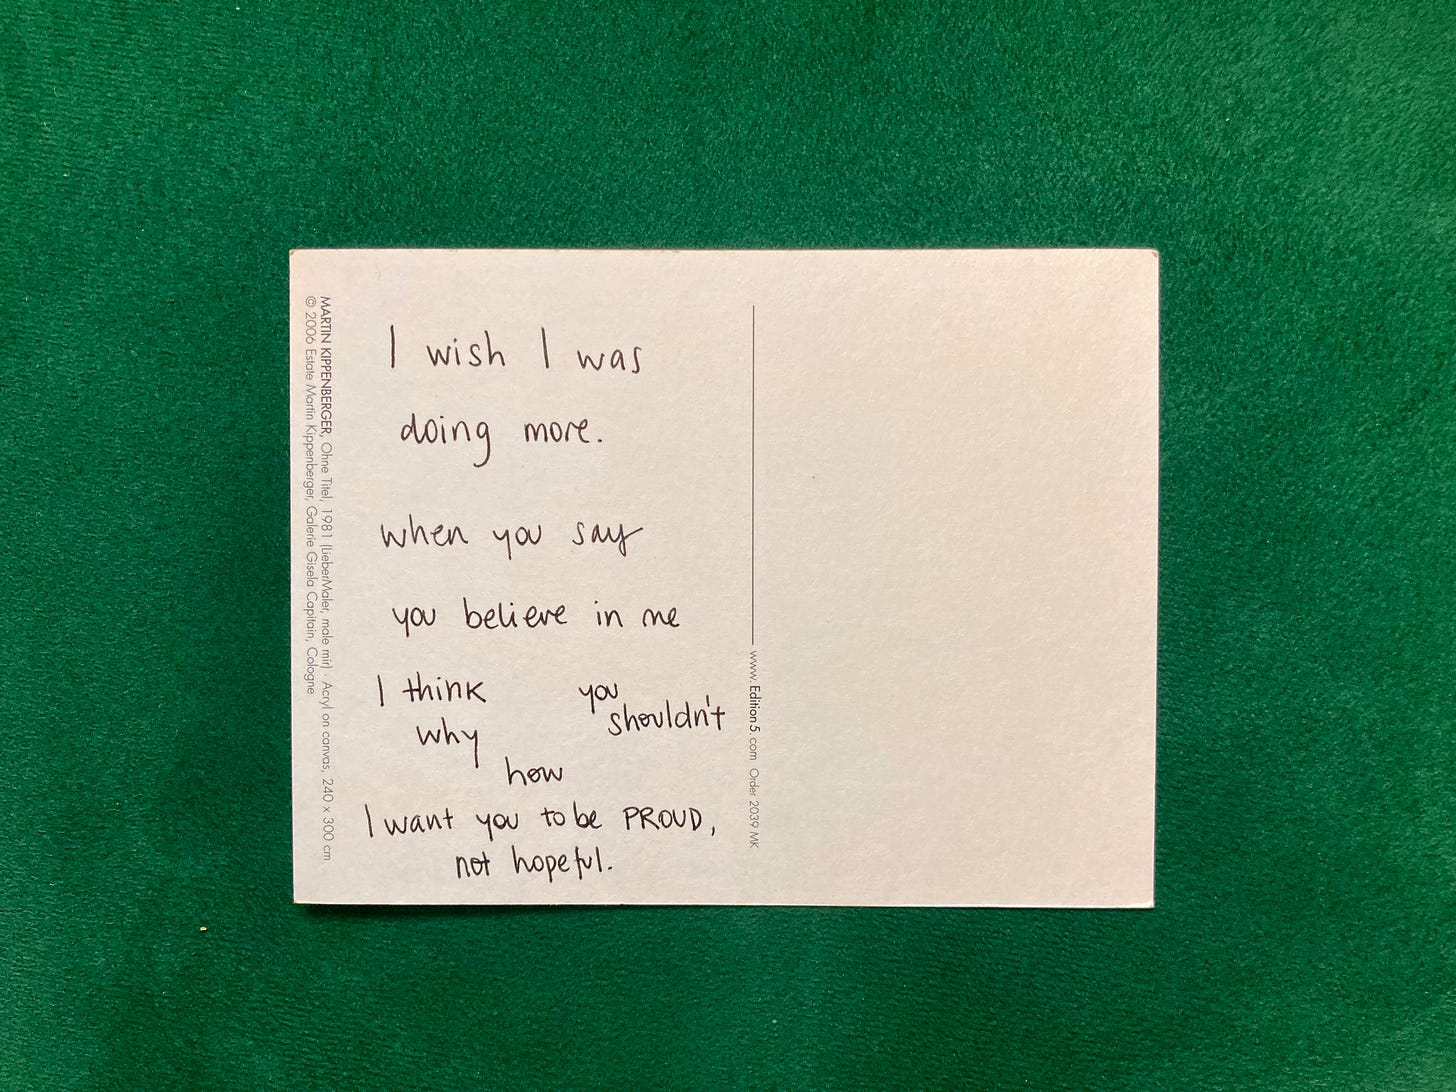 MARTIN KIPPENBERGER, Ohne Titel, 1981 (LieberMaler, male mir) · Acryl on canvas, 240 x 300 cm
© 2006 Estate Martin Kippenberger, Galerie Gisela Capitain, Cologne
I wish I was
doing more.
when you say
you believe in me
I think you
shouldn't
why
how
I want you to be PROUD,
not hopeful.
www.Edition5.com Order 2039 MK